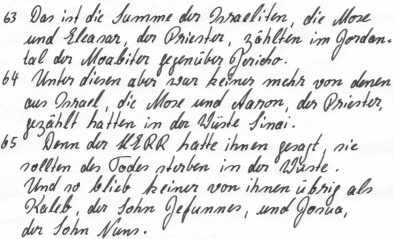 63 Das ist die Summe der Israeliten, die Mose
und Eleasar, der Priester, zählten im Jordan-
tal der Moabiter gegenüber Jericho.
64 Unter diesen aber war keiner mehr von denen
aus Israel, die Mose und Aaron, der Priester,
gezählt hatten in der Wüste Sinai.
65 Denn der HERR hatte ihnen gesagt, sie
sollten des Todes sterben in der Wüste.
Und so blieb keiner von ihnen übrig als
Kaleb, der Sohn Jefunnes, und Josua,
der Sohn Nuns.